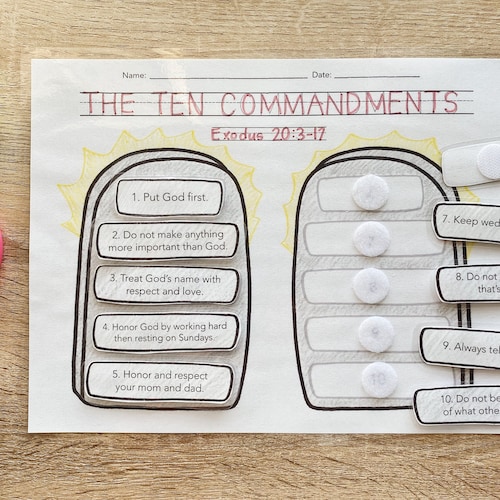 Name: Date:
THE TEN COMMANDMENTS
Exodus 20:3-17
1. Put God first.
2. Do not make anything
more important than God.
3. Treat God's name with
respect and love.
4. Honor God by working hard
then resting on Sundays.
5. Honor and respect
your mom and dad.
7
8
9
10
7. Keep wed
8. Do not
that's
9. Always tel
10. Do not be
of what othe